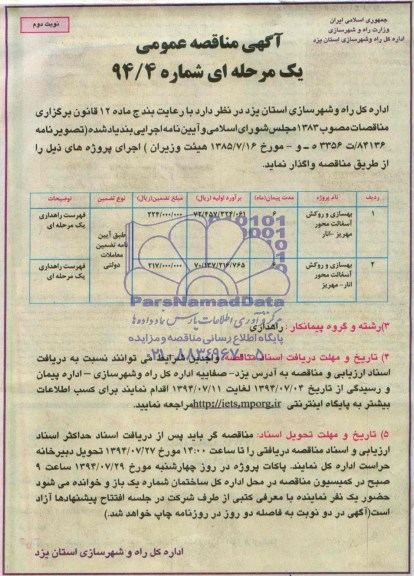 جمهوری اسلامی ایران
وزارت راه و شهرسازی
اداره کل راه وشهرسازی استان یزد
نوبت دوم
آگهی مناقصه عمومی
یک مرحله ای شماره ۹۴/۴
اداره کل راه وشهرسازی استان یزد در نظر دارد با رعایت بند ج ماده ۱۲ قانون برگزاری
مناقصات مصوب ۱۳۸۳ مجلس شورای اسلامی و آیین نامه اجرایی بندیاد شده (تصویرنامه
۸۴۱۳۶/ت ۳۳۵۶ ه ـ و - مورخ ۱۳۸۵/۷/۱۶ هیئت وزیران ) اجرای پروژه های ذیل را
از طریق مناقصه واگذار نماید.
ردیف نام پروژه مدت پیمان(ماه) برآورد اولیه (ریال) مبلغ تضمین(ریال) نوع تضمین توضیحات
۱ بهسازی و روکش آسفالت محور مهریز -انار ۶ ۷۲/۴۵۷/۳۲۴/۰۶۱ ۲۲۴/۰۰۰/۰۰۰ طبق آیین نامه تضمین معاملات دولتی فهرست راهداری یک مرحله ای
۲ بهسازی و روکش آسفالت محور انار- مهریز ۷۰/۶۳۷/۲۱۶/۷۶۵ ۲۱۷/۰۰۰/۰۰۰ فهرست راهداری یک مرحله ای
ParsNamadData
پایگاه اطلاع رسانی مناقصه و مزایده
۰۲۱-۸۸۳۴۹۶۷۰-۵
۳)رشته و گروه پیمانکار : راهداری
۴) تاریخ و مهلت دریافت اسناد مناقصه: واجدین شرایط می توانند نسبت به دریافت
اسناد ارزیابی و مناقصه به آدرس یزد- صفاییه اداره کل راه وشهرسازی – اداره پیمان
و رسیدگی از تاریخ ۱۳۹۴/۰۷/۰۴ لغایت ۱۳۹۴/۰۷/۱۱ اقدام نمایند برای کسب اطلاعات
بیشتر به پایگاه اینترنتی http://iets.mporg.ir مراجعه نمایید.
۵) تاریخ و مهلت تحویل اسناد: مناقصه گر باید پس از دریافت اسناد حداکثر اسناد
ارزیابی و اسناد مناقصه دریافتی را تا ساعت ۱۴:۰۰ مورخ ۱۳۹۴/۰۷/۲۷ تحویل دبیرخانه
حراست اداره کل نمایند. پاکات پروژه در روز چهارشنبه مورخ ۱۳۹۴/۰۷/۲۹ ساعت ۹
صبح در کمیسیون مناقصه در محل اداره کل ساختمان شماره یک باز و خوانده می شود
حضور یک نفر نماینده با معرفی کتبی از طرف شرکت در جلسه افتتاح پیشنهادها آزاد
است(آگهی در دو نوبت به فاصله دو روز در روزنامه چاپ خواهد شد.)
اداره کل راه و شهرسازی استان یزد